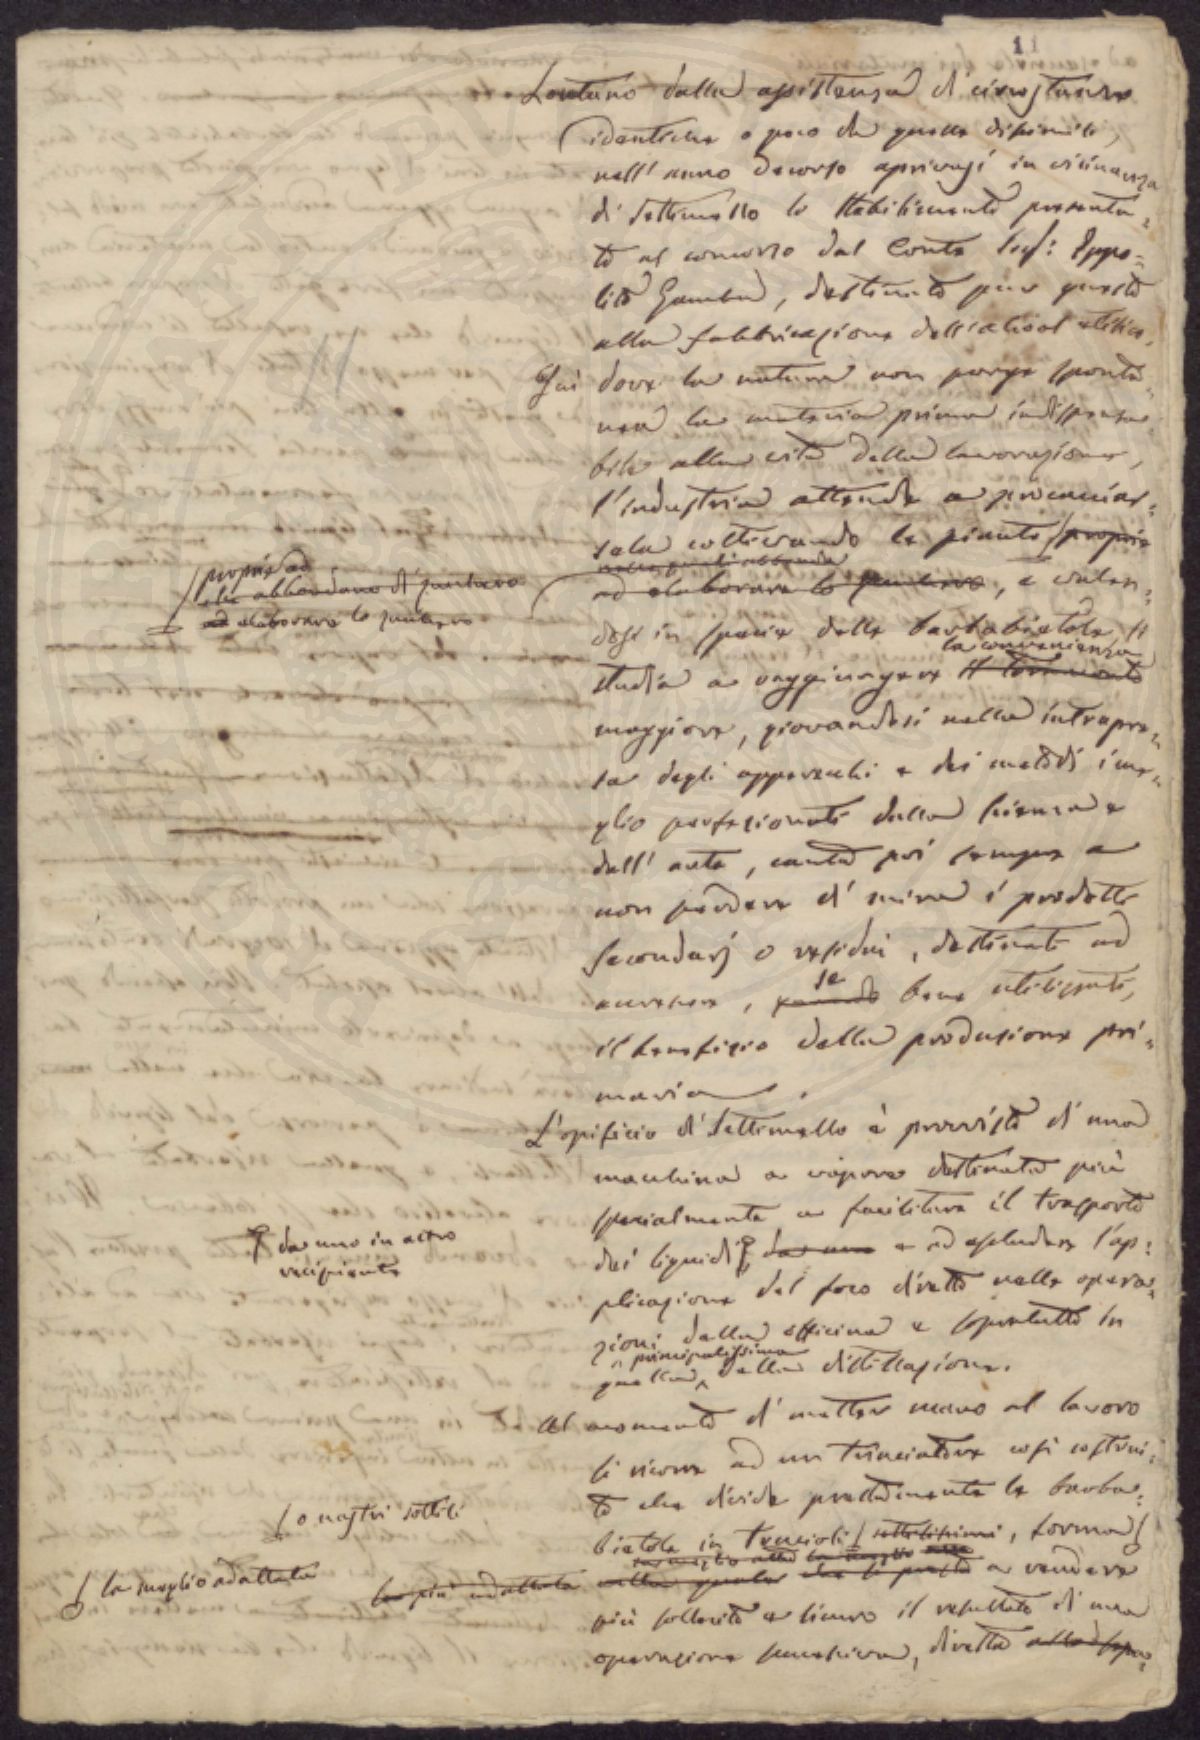 11
Lontano dalla assistenza di circostanze
identiche o poco da quelle dissimili,
nell'anno decorso aprivasi in vicinanza
di Settimello lo Stabilimento presenta=
to al concorso dal Conte Ippo=
lito Gamba, destinato pur questo
alla fabbricazione dell'alcool etilico.
Qui dove la natura non porge sponta=
nea la materia prima indispensa=
bile alla vita della lavorazione,
l'industria attende a procacciar=
sela coltivando le piante / proprie
ad elaborare lo zucchero, e valen=
dosi in specie delle barbabietole, si
la convenienza
studia a raggiungere il tornaconto
maggiore, giovandosi nella intrapre=
sa degli apparecchi e dei metodi i me=
glio perfezionati dalla scienza e
dall'arte, cauta poi sempre a
non perdere di mira i prodotti
secondarj o residui, destinati ad
se
accrescere, quando bene utilizzati,
il beneficio della produzione pri=
maria.
L'opificio di Settimello è provvisto di una
macchina a vapore destinata più
specialmente a facilitare il trasporto
dei liquidi da uno e ad escludere l'ap=
plicazione del foco diretto nelle opera=
zioni della officina e soprattutto in
principalissima
quella della distillazione.
Al momento di metter mano al lavoro
si ricorre ad un trinciatore così costrui=
to che divide prestamente le barba=
bietole in truccioli / sottilissimi, forma /
le più adattata alla quale che si presta a rendere
più sollecito e sicuro il resultato di una
operazione successiva, diretta alla sepa=
/ proprie ad
che abbondano di zucchero
ad elaborare lo zucchero
da uno in altro
recipiente
/ o nastri sottili
/ la meglio adattata